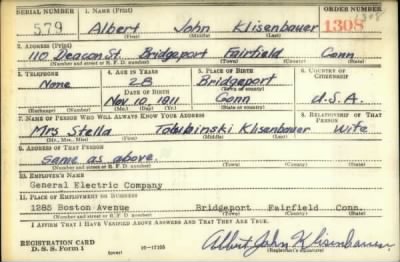 SERIAL NUMBER 1. NAME (Print) ORDER NUMBER
579 Albert John Klisenbauer 1308 1308
(First) (Middle) (Last)
2. ADDRESS (Print)
110 Deacon St. Bridgeport Fairfield Conn
(Number and street or R. F. D. number) (Town) (County) (State)
3. TELEPHONE 4. AGE IN YEARS 5. PLACE OF BIRTH 6. COUNTRY OF CITIZENSHIP
None 28 Bridgeport
DATE OF BIRTH (Town or county)
Nov. 10, 1911 Conn U.S.A.
(Exchange) (Number) (Mo.) (Day) (Yr.) (State or country)
7. NAME OF PERSON WHO WILL ALWAYS KNOW YOUR ADDRESS 8. RELATIONSHIP OF THAT PERSON
Mrs Stella Klisenbauer Wife
(Mr., Mrs., Miss) (First) (Middle) (Last)
9. ADDRESS OF THAT PERSON
Same as above.
(Number and street or R. F. D. number) (Town) (County) (State)
10. EMPLOYER'S NAME
General Electric Company
11. PLACE OF EMPLOYMENT OR BUSINESS
1285 Boston Avenue Bridgeport Fairfield Conn.
(Number and street or R. F. D. number) (Town) (County) (State)
I AFFIRM THAT I HAVE VERIFIED ABOVE ANSWERS AND THAT THEY ARE TRUE.
REGISTRATION CARD
D. S. S. Form 1 (over) 16-17105 Albert John Klisenbauer